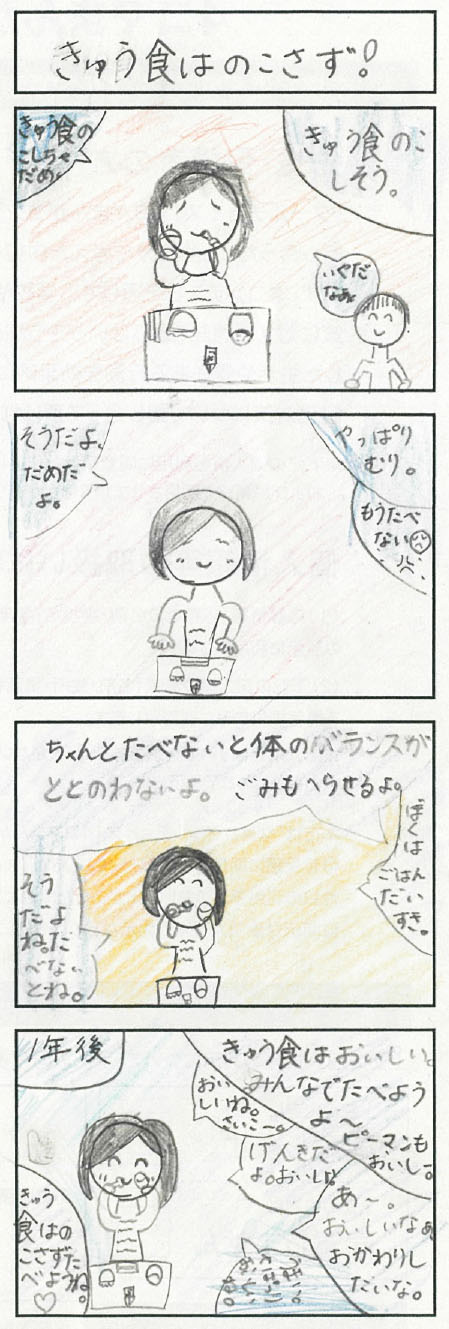 きゅう食はのこさず!
きゅう食のこ
しそう。
きゅう食の
こしちゃ
だめ
いやだ
なぁ
やっぱり
むり。
もうたべ
ない
そうだよ、
だめだ
よ。
ちゃんとたべないと体のバランスが
ととのわないよ。ごみもへらせるよ。
ぼくは
ごはん
だい
すき。
そう
だよ
ね。だ
べない
とね。
1年後
きゅう食はおいしい。
みんなでたべよう
よ〜
ピーマンも
おいしー。
おい
しいね。
さいこー。
げんきだ
よ。おいしい
あ〜。
おいしいなぁ
おかわりし
だいな。
きゅう
食はの
こさずた
べようね。